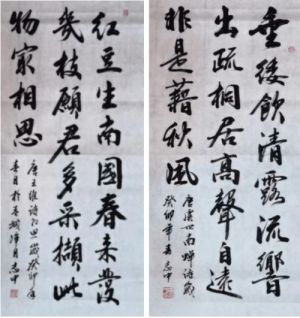 垂緌飲清露流響
出疏桐居高聲自遠
非是藉秋風
唐虞世南蟬詩歲
癸卯年春志中
紅豆生南國春來發
幾枝願君多采擷此
物最相思
唐王維詩相思歲癸卯年
春月於城淨月志中